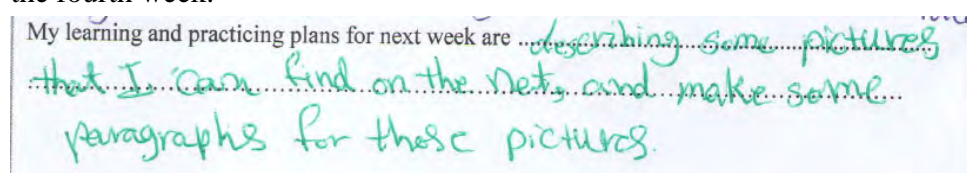 the fourth week.
My learning and practicing plans for next week are ..describing some pictures
that I can find on the net, and make some
paragraphs for those pictures.